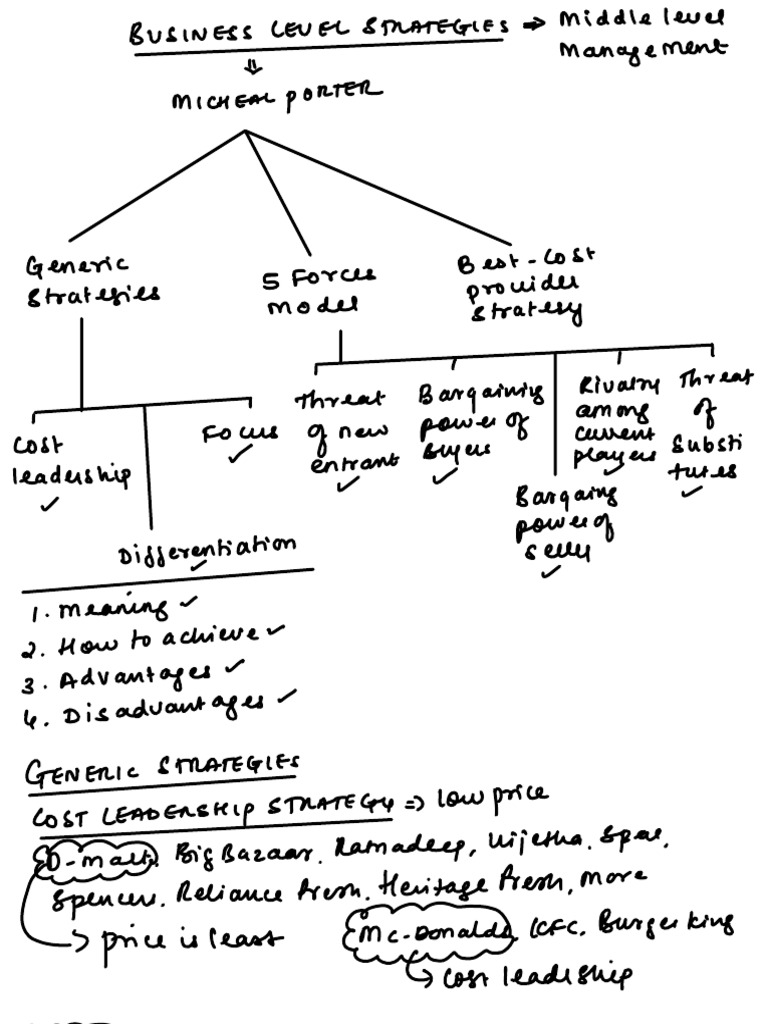 BUSINESS LEVEL STRATEGIES ⇒ Middle level
Management
⇓
MICHEAL PORTER
Generic
Strategies
5 Forces
Model
Best-Cost
provider
Strategy
Cost
leadership ✓
Differentiation ✓
Focus ✓
Threat
of new
entrant ✓
Bargaining
power of
buyers ✓
Bargaing
power of
✓
Rivalry
among
current
players ✓
Threat
of
Substi
tutes ✓
1. Meaning ✓
2. How to achieve ✓
3. Advantages ✓
4. Disadvantages ✓
GENERIC STRATEGIES
COST LEADERSHIP STRATEGY ⇒ low price
D-mart, Big Bazaar, Ratnadeep, Vijetha, Spar,
Spencers, Reliance Fresh, Heritage Fresh, More
→ price is least
Mc-Donalds, KFC, Burger king
→ Cost leadership